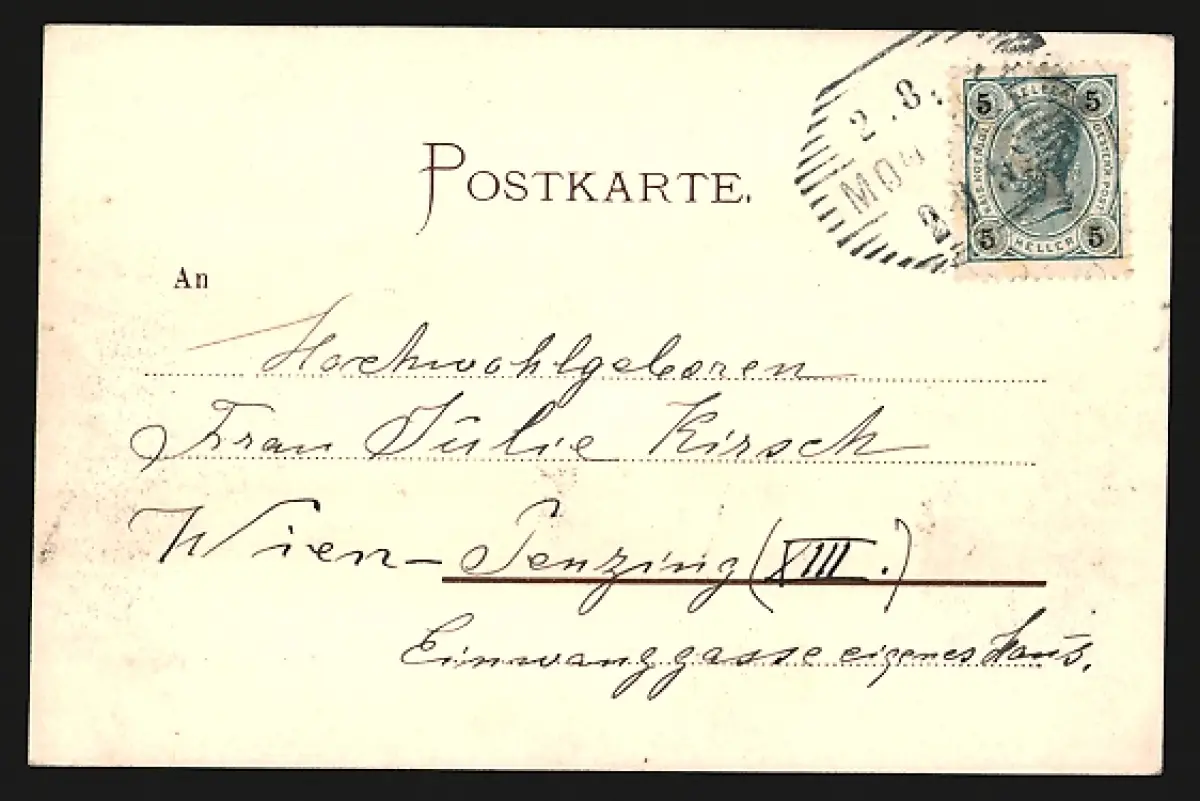 POSTKARTE.
2.8.
5 5
HELLER
5 5
An
Hochwohlgeboren
Frau Julie Kirsch
Wien-Penzing (XIII.)
Einwanggasse eigenes Haus.